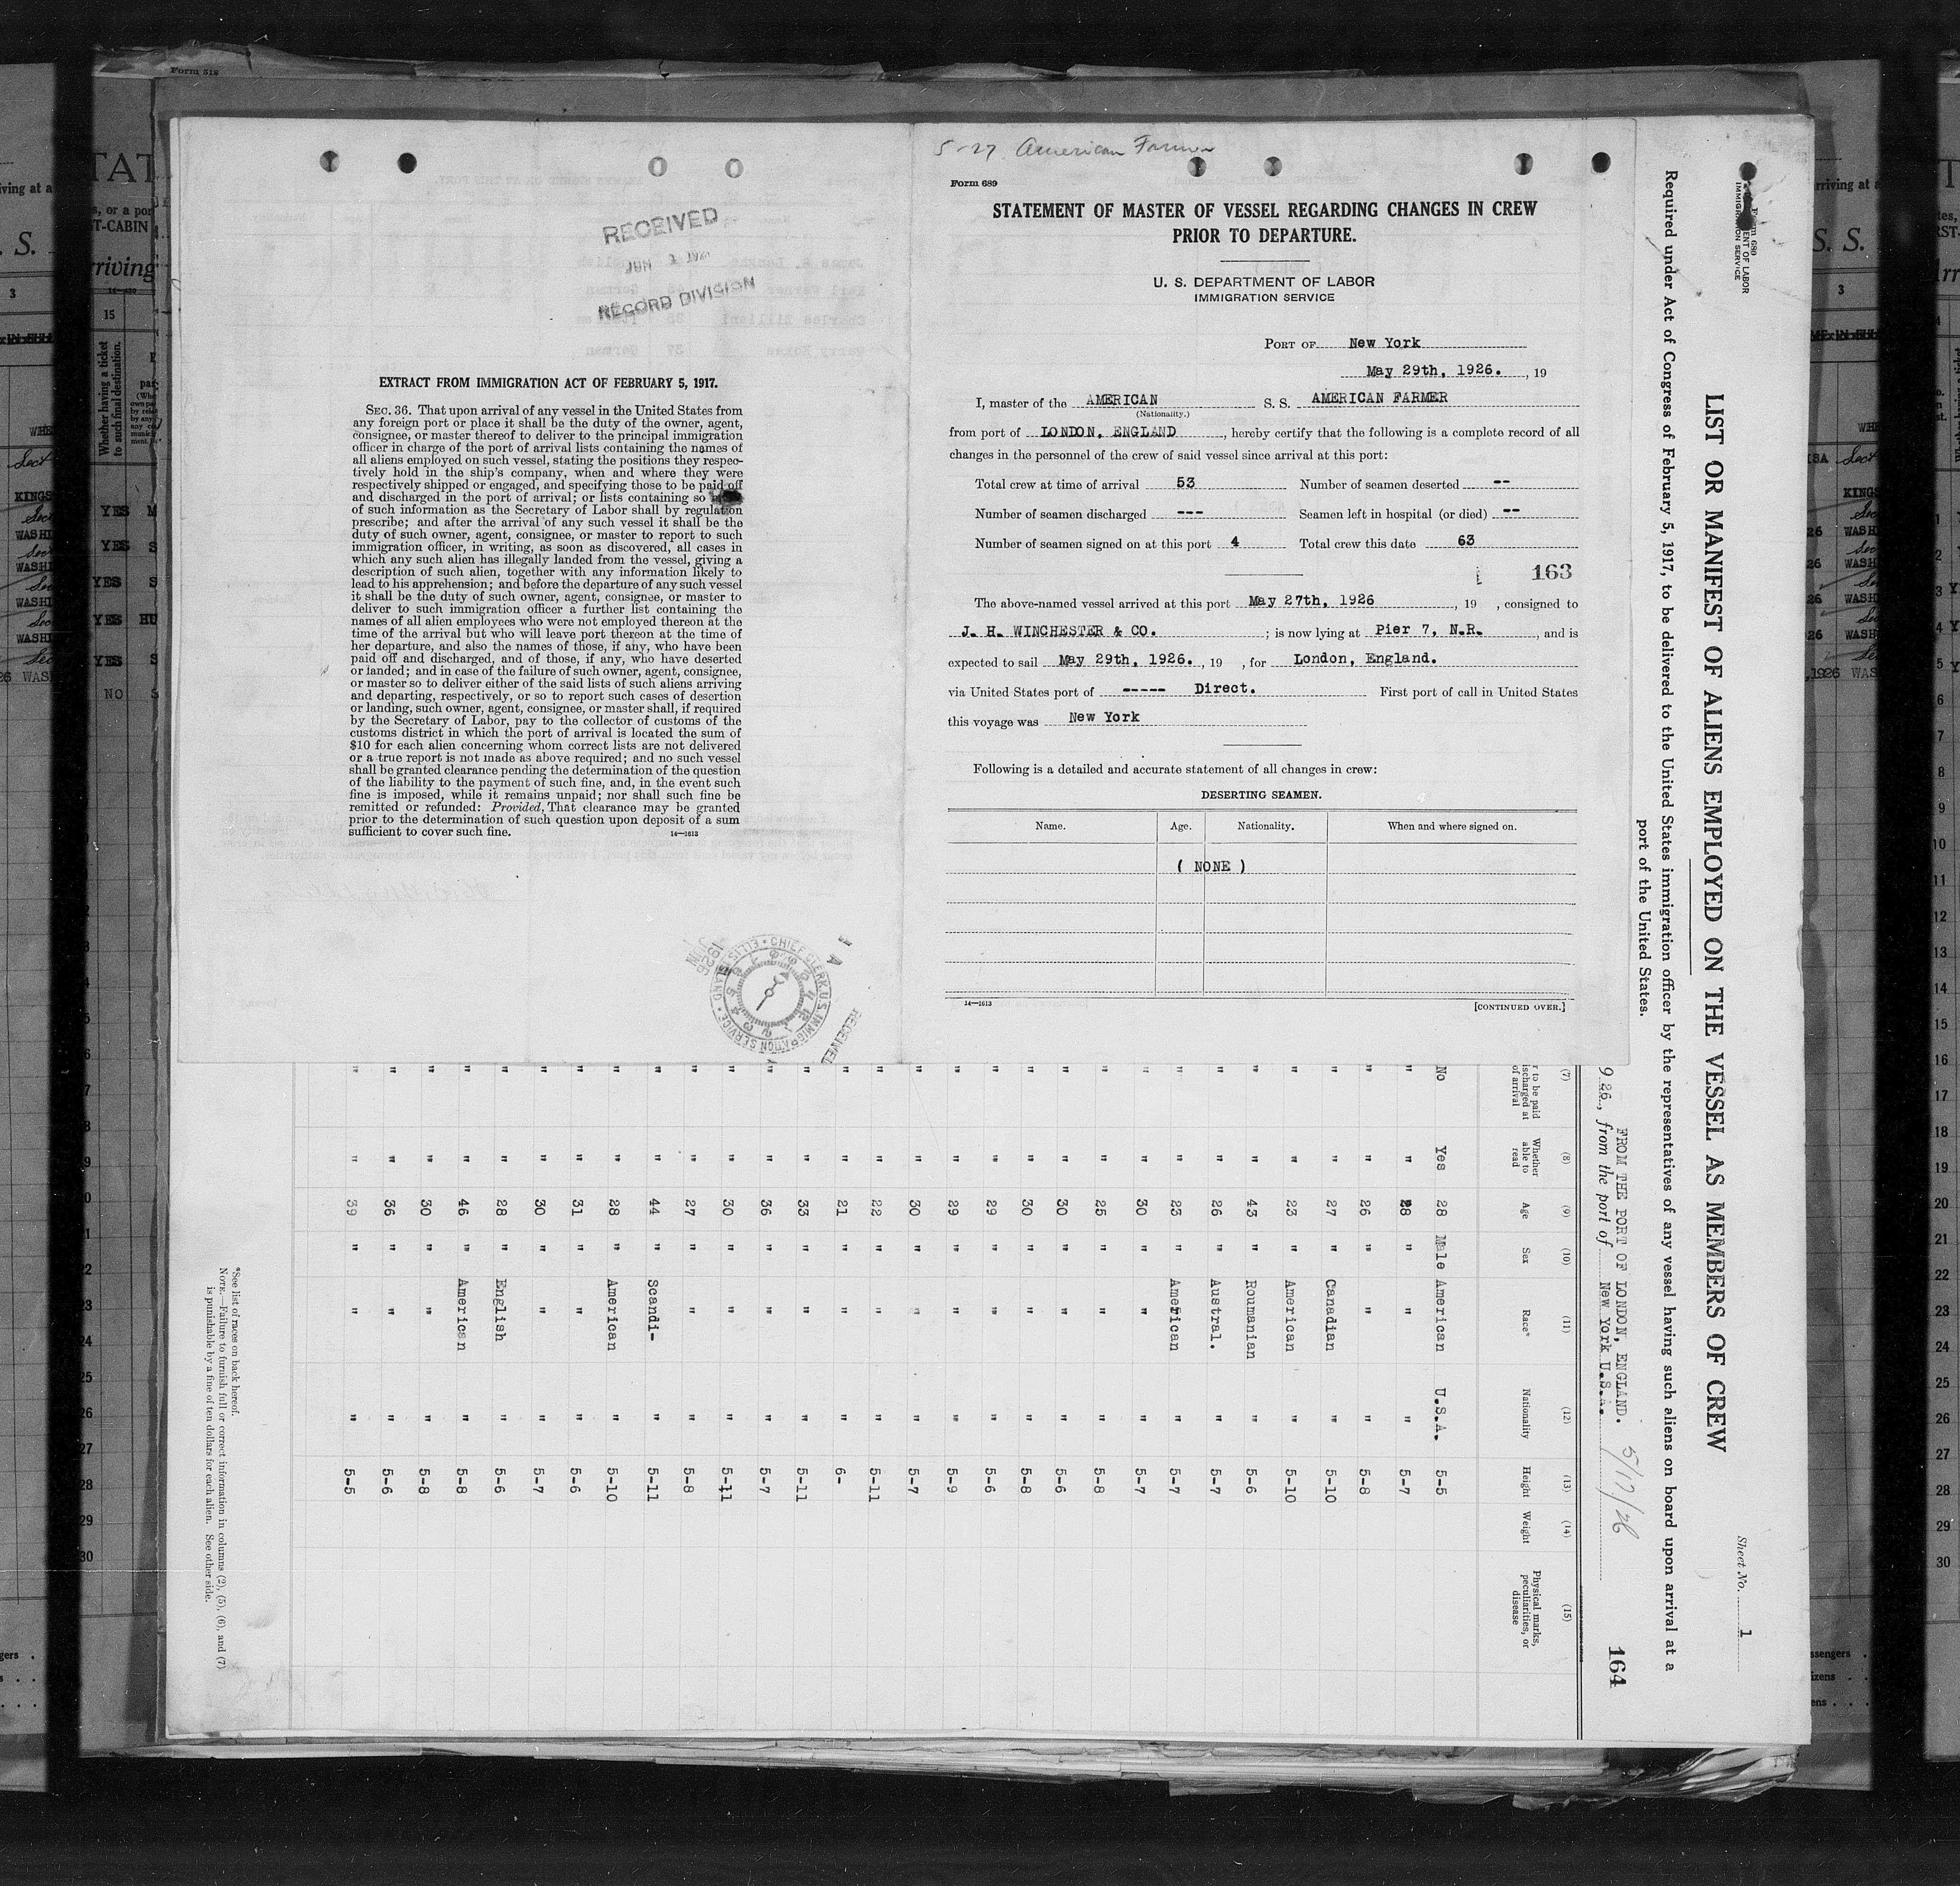 5-27 American Farmer
Form 689
STATEMENT OF MASTER OF VESSEL REGARDING CHANGES IN CREW
PRIOR TO DEPARTURE.
U. S. DEPARTMENT OF LABOR
IMMIGRATION SERVICE
PORT OF New York
May 29th, 1926. , 19
I, master of the AMERICAN S. S. AMERICAN FARMER
(Nationality.)
from port of LONDON, ENGLAND, hereby certify that the following is a complete record of all
changes in the personnel of the crew of said vessel since arrival at this port:
Total crew at time of arrival 53 Number of seamen deserted --
Number of seamen discharged --- Seamen left in hospital (or died) --
Number of seamen signed on at this port 4 Total crew this date 63
163
The above-named vessel arrived at this port May 27th, 1926 , 19 , consigned to
J. H. WINCHESTER & CO. ; is now lying at Pier 7, N.R. , and is
expected to sail May 29th, 1926. , 19 , for London, England.
via United States port of ----- Direct. First port of call in United States
this voyage was New York
Following is a detailed and accurate statement of all changes in crew:
DESERTING SEAMEN.
Name. Age. Nationality. When and where signed on.
( NONE )
14—1613 [CONTINUED OVER.]
RECEIVED
JUN
RECORD DIVISION
EXTRACT FROM IMMIGRATION ACT OF FEBRUARY 5, 1917.
SEC. 36. That upon arrival of any vessel in the United States from
any foreign port or place it shall be the duty of the owner, agent,
consignee, or master thereof to deliver to the principal immigration
officer in charge of the port of arrival lists containing the names of
all aliens employed on such vessel, stating the positions they respec-
tively hold in the ship's company, when and where they were
respectively shipped or engaged, and specifying those to be paid off
and discharged in the port of arrival; or lists containing so
of such information as the Secretary of Labor shall by regulation
prescribe; and after the arrival of any such vessel it shall be the
duty of such owner, agent, consignee, or master to report to such
immigration officer, in writing, as soon as discovered, all cases in
which any such alien has illegally landed from the vessel, giving a
description of such alien, together with any information likely to
lead to his apprehension; and before the departure of any such vessel
it shall be the duty of such owner, agent, consignee, or master to
deliver to such immigration officer a further list containing the
names of all alien employees who were not employed thereon at the
time of the arrival but who will leave port thereon at the time of
her departure, and also the names of those, if any, who have been
paid off and discharged, and of those, if any, who have deserted
or landed; and in case of the failure of such owner, agent, consignee,
or master so to deliver either of the said lists of such aliens arriving
and departing, respectively, or so to report such cases of desertion
or landing, such owner, agent, consignee, or master shall, if required
by the Secretary of Labor, pay to the collector of customs of the
customs district in which the port of arrival is located the sum of
$10 for each alien concerning whom correct lists are not delivered
or a true report is not made as above required; and no such vessel
shall be granted clearance pending the determination of the question
of the liability to the payment of such fine, and, in the event such
fine is imposed, while it remains unpaid; nor shall such fine be
remitted or refunded: Provided, That clearance may be granted
prior to the determination of such question upon deposit of a sum
sufficient to cover such fine. 14—1613
CHIEF CLERK, U.S. IMMIGRATION SERVICE • ELLIS ISLAND •
JUN
1926
RECEIVED
Sheet No. 1
LIST OR MANIFEST OF ALIENS EMPLOYED ON THE VESSEL AS MEMBERS OF CREW
Required under Act of Congress of February 5, 1917, to be delivered to the United States immigration officer by the representatives of any vessel having such aliens on board upon arrival at a
port of the United States.
164
FROM THE PORT OF LONDON, ENGLAND. 5/17/26
926., from the port of New York U.S.A.
(7) (8) (9) (10) (11) (12) (13) (14) (15)
Whether able to read Age Sex Race* Nationality Height Weight Physical marks, peculiarities, or disease
No Yes 28 Male American U.S.A. 5-5
" " 28 " " " 5-7
" " 26 " " " 5-8
" " 27 " Canadian " 5-10
" " 23 " American " 5-10
" " 43 " Roumanian " 5-6
" " 26 " Austral. " 5-7
" " 23 " American " 5-7
" " 30 " " " 5-7
" " 25 " " " 5-8
" " 30 " " " 5-6
" " 30 " " " 5-8
" " 29 " " " 5-6
" " 29 " " " 5-9
" " 30 " " " 5-7
" " 22 " " " 5-11
" " 21 " " " 6-
" " 33 " " " 5-11
" " 36 " " " 5-7
" " 30 " " " 5-11
" " 27 " " " 5-8
" " 44 " Scandi- " 5-11
" " 28 " American " 5-10
" " 31 " " " 5-6
" " 30 " " " 5-7
" " 28 " English " 5-6
" " 46 " American " 5-8
" " 30 " " " 5-8
" " 36 " " " 5-6
" " 39 " " " 5-5
*See list of races on back hereof.
NOTE.—Failure to furnish full or correct information in columns (2), (5), (6), and (7)
is punishable by a fine of ten dollars for each alien. See other side.